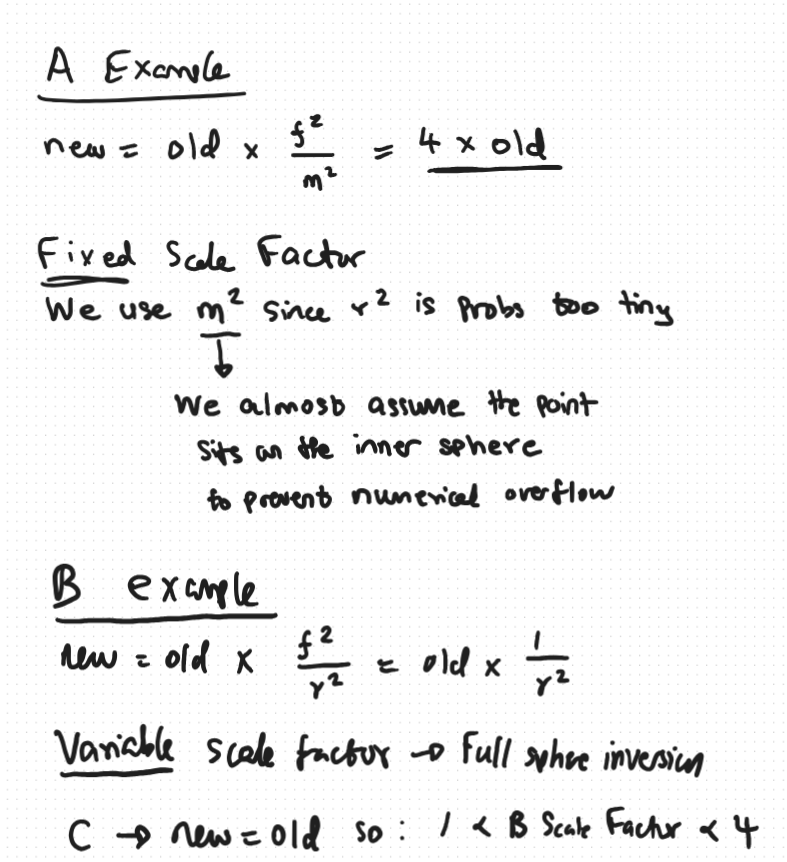 A Example
new = old × f²/m² = 4 × old
Fixed Scale Factor
We use m² since r² is probs too tiny
↓
We almost assume the point
sits on the inner sphere
to prevent numerical overflow
B example
new = old × f²/r² = old × 1/r²
Variable scale factor → Full sphere inversion
C → new = old so : 1 < B Scale Factor < 4